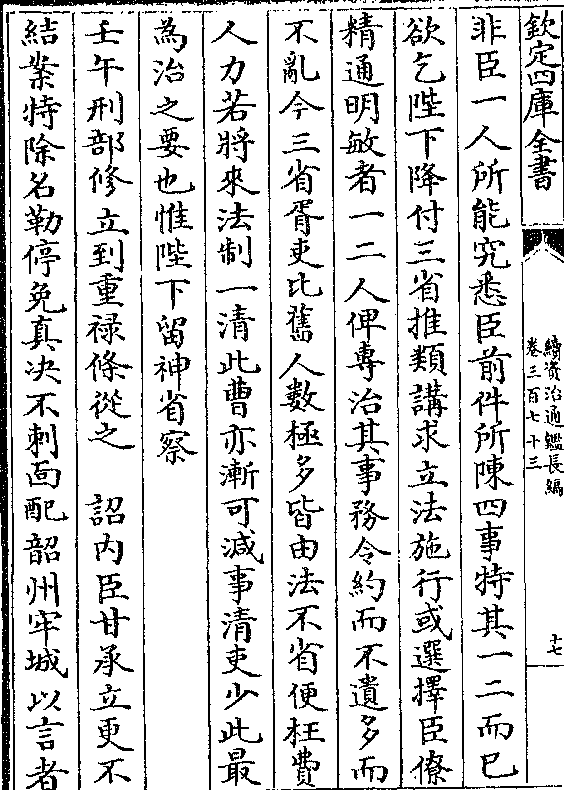 欽定四庫全書
續資治通鑑長編
卷三百七十三
十七
非臣一人所能究悉臣前件所陳四事特其一二而已
欲乞陛下降付三省推類講求立法施行或選擇臣僚
精通明敏者一二人俾專治其事務令約而不遺多而
不亂今三省胥吏比舊人數極多皆由法不省便枉費
人力若將來法制一清此曹亦漸可減事清吏少此最
為治之要也惟陛下留神省察
壬午刑部修立到重禄條從之　詔内臣甘承立更不
結案特除名勒停免真決不刺面配韶州牢城以言者